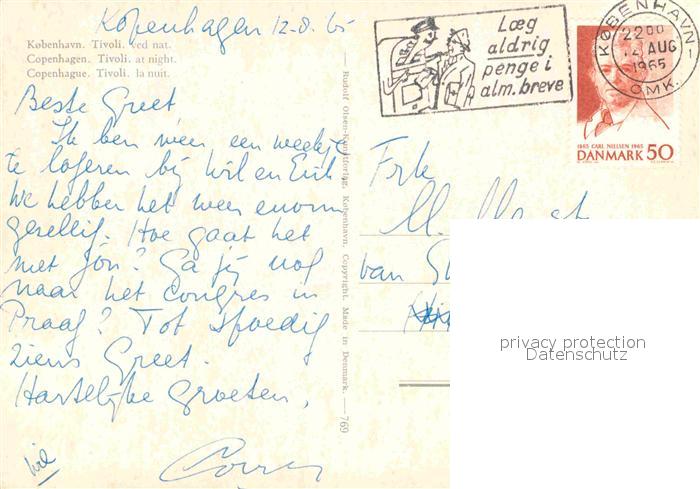 Kopenhagen 12-8-65
København. Tivoli. ved nat.
Copenhagen. Tivoli. at night.
Copenhague. Tivoli. la nuit.
Beste Greet
Ik ben weer een weekje
te logeren bij Wil en Erik
We hebben het weer enorm
gezellig. Hoe gaat het
met jou? Ga jij nog
naar het congres in
Praag? Tot spoedig
ziens Greet.
Hartelijke groeten,
Wil
Rudolf Olsen-Kunstforlag, København. Copyright. Made in Denmark. — 769
Læg
aldrig
penge i
alm. breve
KØBENHAVN
22 00
12 AUG
1965
OMK.
1865 CARL NIELSEN 1965
DANMARK 50
Frk
van
privacy protection
Datenschutz